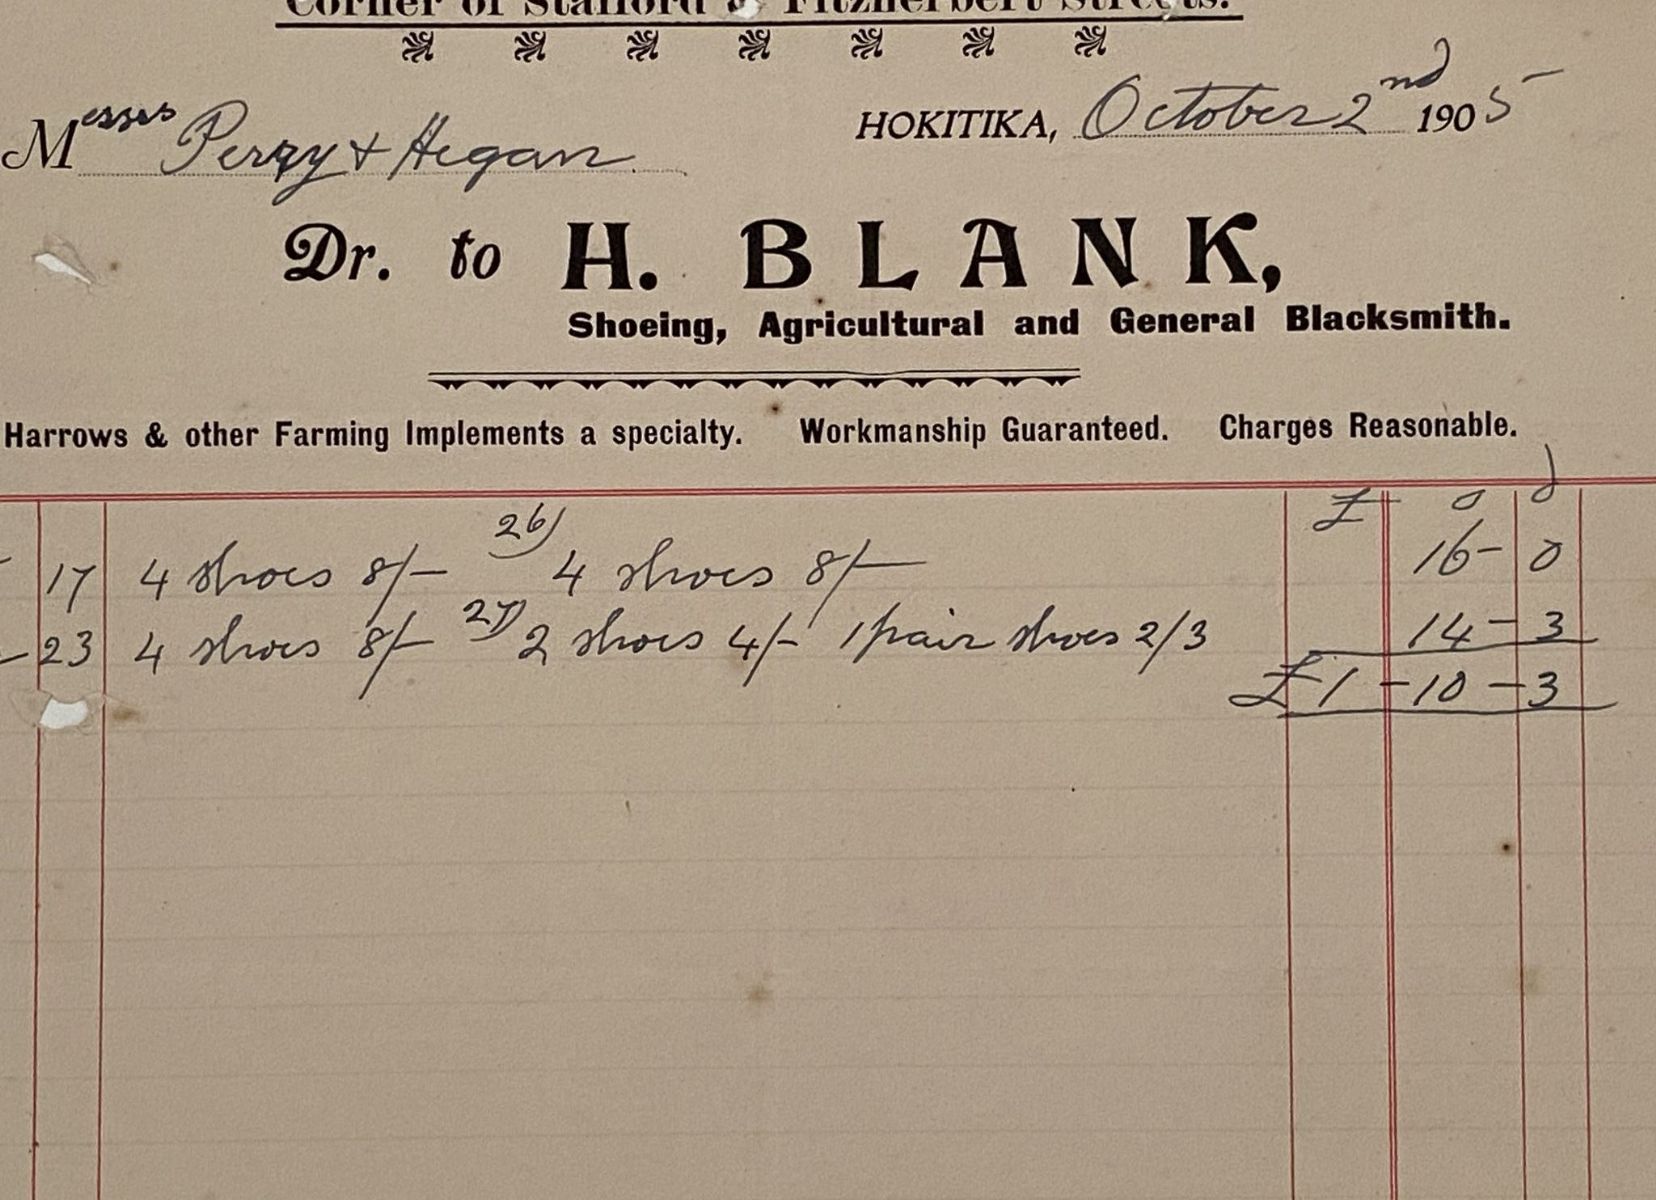 Corner of Stafford & Fitzherbert Streets.
Messrs Perry & Hegan HOKITIKA, October 2nd 1905
Dr. to H. BLANK,
Shoeing, Agricultural and General Blacksmith.
Harrows & other Farming Implements a specialty. Workmanship Guaranteed. Charges Reasonable.
£ s d
17 4 shoes 8/- 26) 4 shoes 8/- 16 - 0
23 4 shoes 8/- 27) 2 shoes 4/- 1 pair shoes 2/3 14 - 3
£1 - 10 - 3